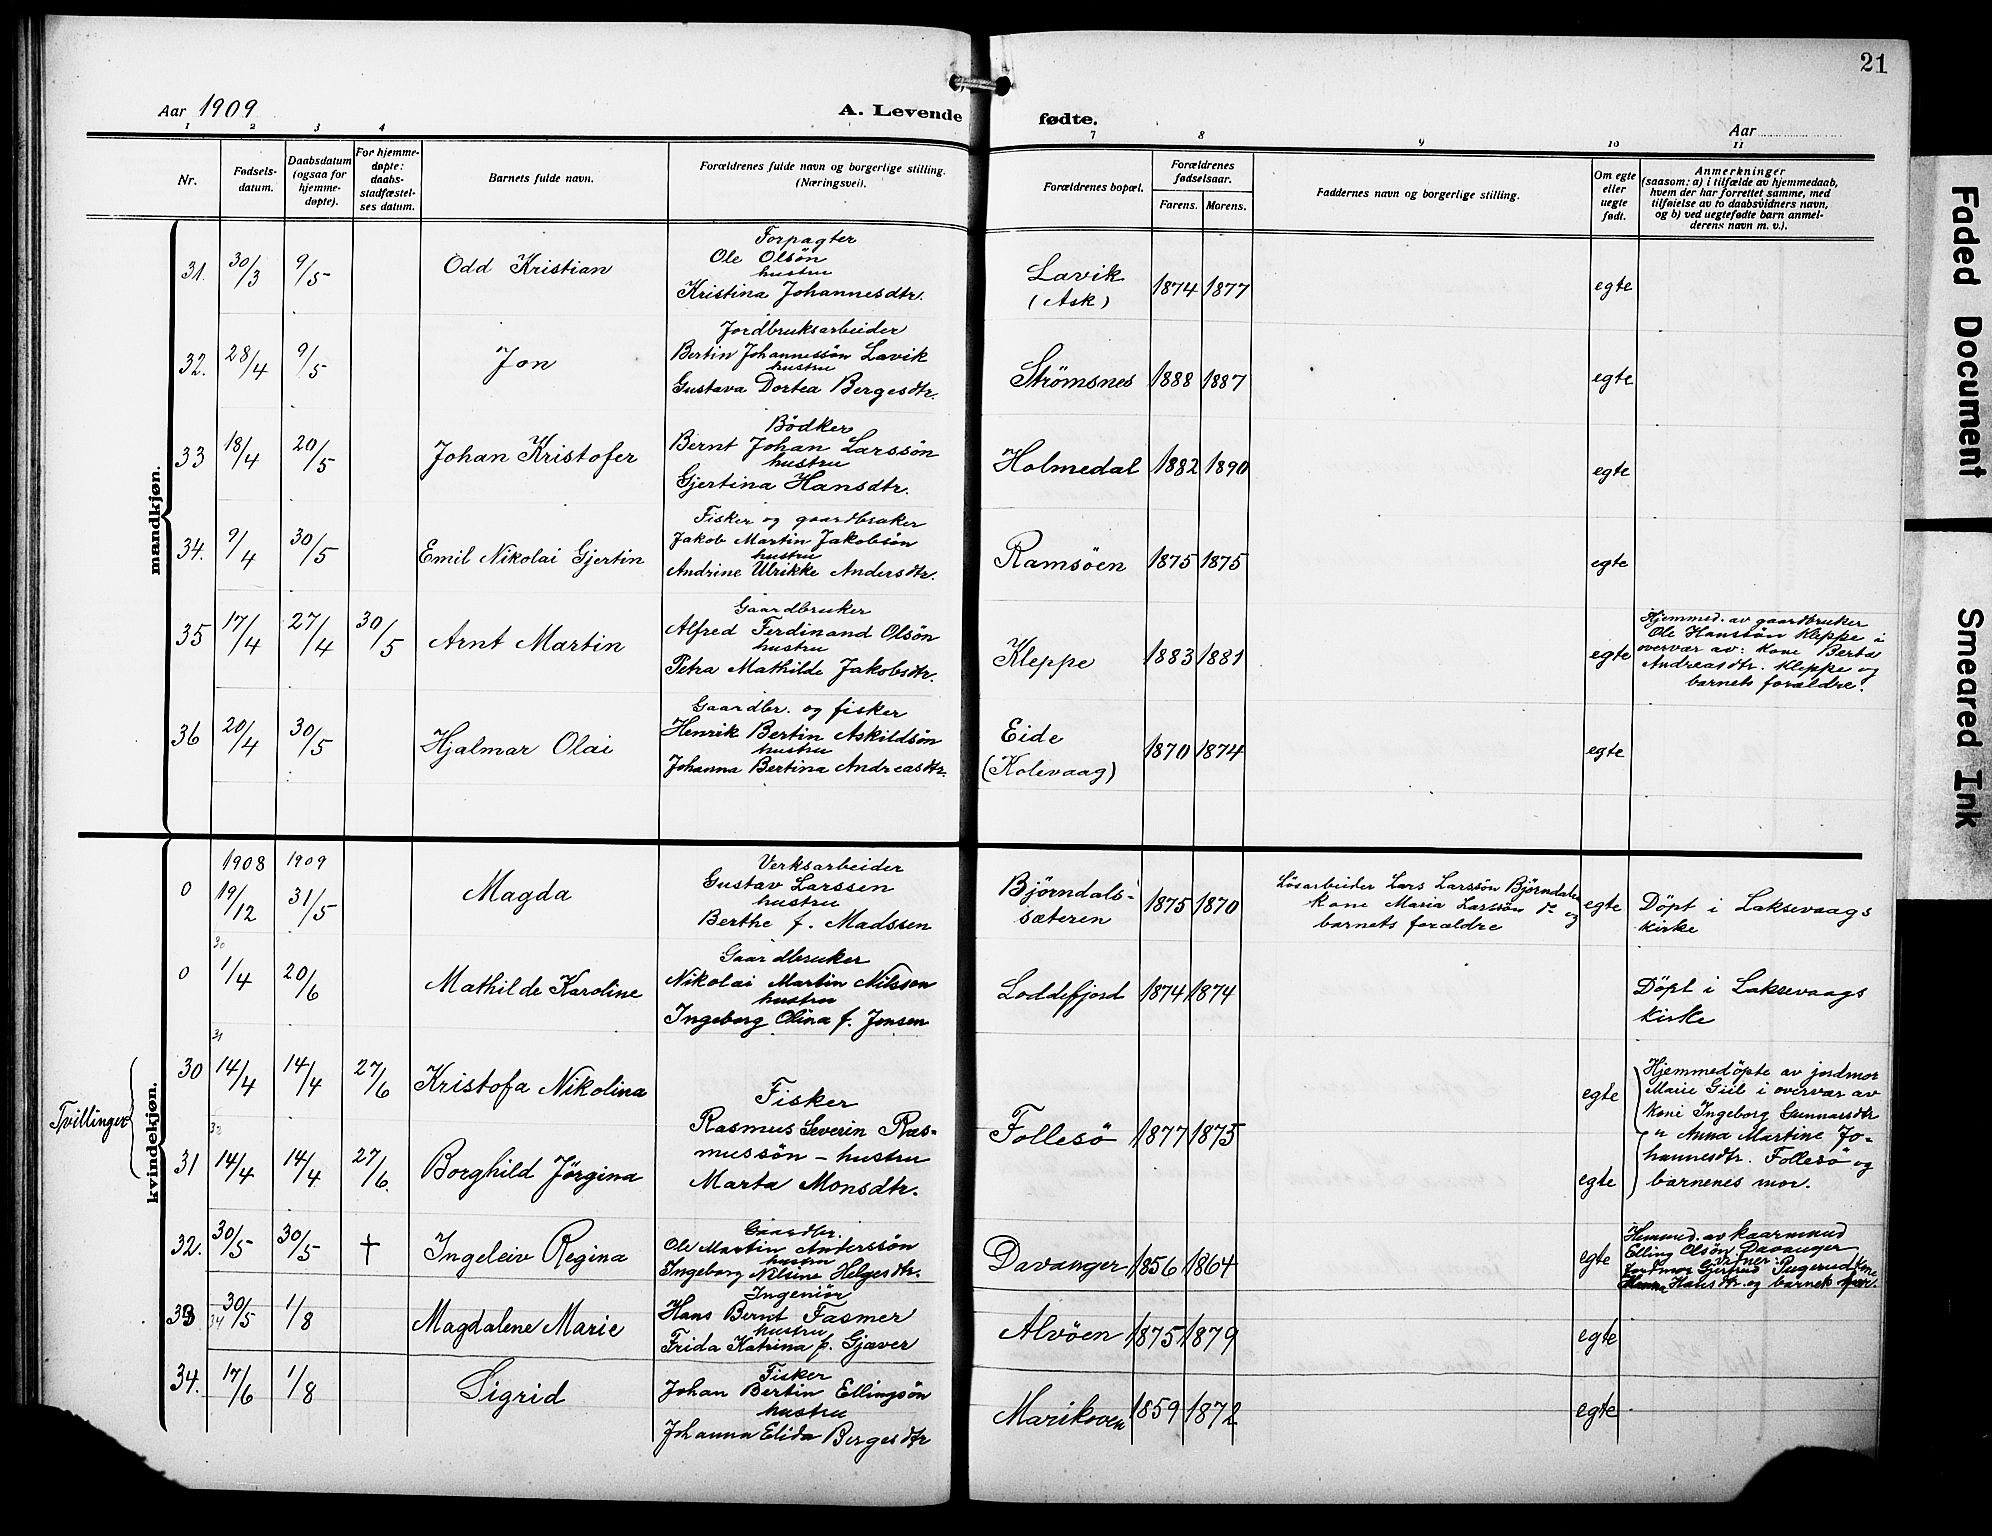 21
Aar 1909
A. Levende fødte.
Aar
1 2 3 4 7 8 9 10 11
Nr.
Fødsels-
datum.
Daabsdatum
(ogsaa for
hjemme-
døpte).
For hjemme-
døpte:
daabs-
stadfæstel-
ses datum.
Barnets fulde navn.
Forældrenes fulde navn og borgerlige stilling.
(Næringsvei).
Forældrenes bopæl.
Forældrenes
fødselsaar.
Farens. Morens.
Faddernes navn og borgerlige stilling.
Om egte
eller
uegte
født.
Anmerkninger
(saasom: a) i tilfælde av hjemmedaab,
hvem der har forrettet samme, med
tilføielse av to daabsvidners navn,
og b) ved uegtefødte barn anmel-
derens navn m. v.).
mandkjøn.
31. 30/3 9/5 Odd Kristian
Forpagter
Ole Olsön
hustru
Kristina Johannesdtr.
Lavik
(Ask)
1874 1877 egte
32. 28/4 9/5 Jon
Jordbruksarbeider
Bertin Johannessön Lavik
hustru
Gustava Dortea Bergesdtr.
Strømsnes 1888 1887 egte
33 18/4 20/5 Johan Kristofer
Bödker
Bernt Johan Larssön
hustru
Gjertina Hansdtr.
Holmedal 1882 1890 egte
34. 9/4 30/5 Emil Nikolai Gjertin
Fisker og gaardbruker
Jakob Martin Jakobsön
hustru
Andrine Ulrikke Andersdtr.
Ramsöen 1875 1875 egte
35 17/4 27/4 30/5 Arnt Martin
Gaardbruker
Alfred Ferdinand Olsön
hustru
Petra Mathilde Jakobsdtr.
Kleppe 1883 1881 egte
Hjemmed. av gaardbruker
Ole Hanssön Kleppe i
overvær av: kone Berta
Andreasdtr. Kleppe og
barnets forældre.
36 20/4 30/5 Hjalmar Olai
Gaardbr. og fisker
Henrik Bertin Askildsön
hustru
Johanna Bertina Andreasdtr.
Eide
(Kolevaag)
1870 1874 egte
kvindekjøn.
1908 1909
0 19/12 31/5 Magda
Verksarbeider
Gustav Larssen
hustru
Berthe f. Madssen
Björndals-
sæteren
1875 1870
Løsarbeider Lars Larssön Björndalen
kone Maria Larssön do og
barnets forældre
egte
Döpt i Laksevaags
kirke
30
0 1/4 20/6 Mathilde Karoline
Gaardbruker
Nikolai Martin Nilssen
hustru
Ingeborg Olina f. Jensen
Loddefjord 1874 1874
Döpt i Laksevaags
kirke
31
Tvillinger
30 14/4 14/4 27/6 Kristofa Nikolina
egte
32
31 14/4 14/4 27/6. Borghild Jörgina
egte
Fisker
Rasmus Severin Ras-
mussön – hustru
Marta Monsdtr.
Follesö 1877 1875
Hjemmedöpte av jordmor
Marie Giil i overvær av
kone Ingeborg Gunnarsdtr
" Anna Martine Jo-
hannesdtr. Follesö og
barnenes mor.
32. 30/5 30/5 † Ingeleiv Regina
Gaardbr.
Ole Martin Anderssön
hustru
Ingeborg Nilsine Helgesdtr.
Davanger 1856 1864 egte
av kaarmand
Elling Olsön Davanger
Jordmor Gjertrud kone
Hansdtr. og barnets far.
33 34 30/5 1/8 Magdalene Marie
Ingeniör
Hans Bernt Fasmer
hustru
Frida Katrina f. Gjæver
Alvöen 1875 1879 egte
34. 17/6 1/8 Sigrid
Fisker
Johan Bertin Ellingsön
hustru
Johanna Elida Bergesdtr
Marikoven 1859 1872 egte
Faded Document
Smeared Ink